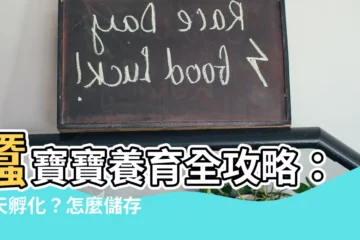 Race Day
Good Luck!
蠶寶寶養育全攻略：
天孵化？怎麼儲存